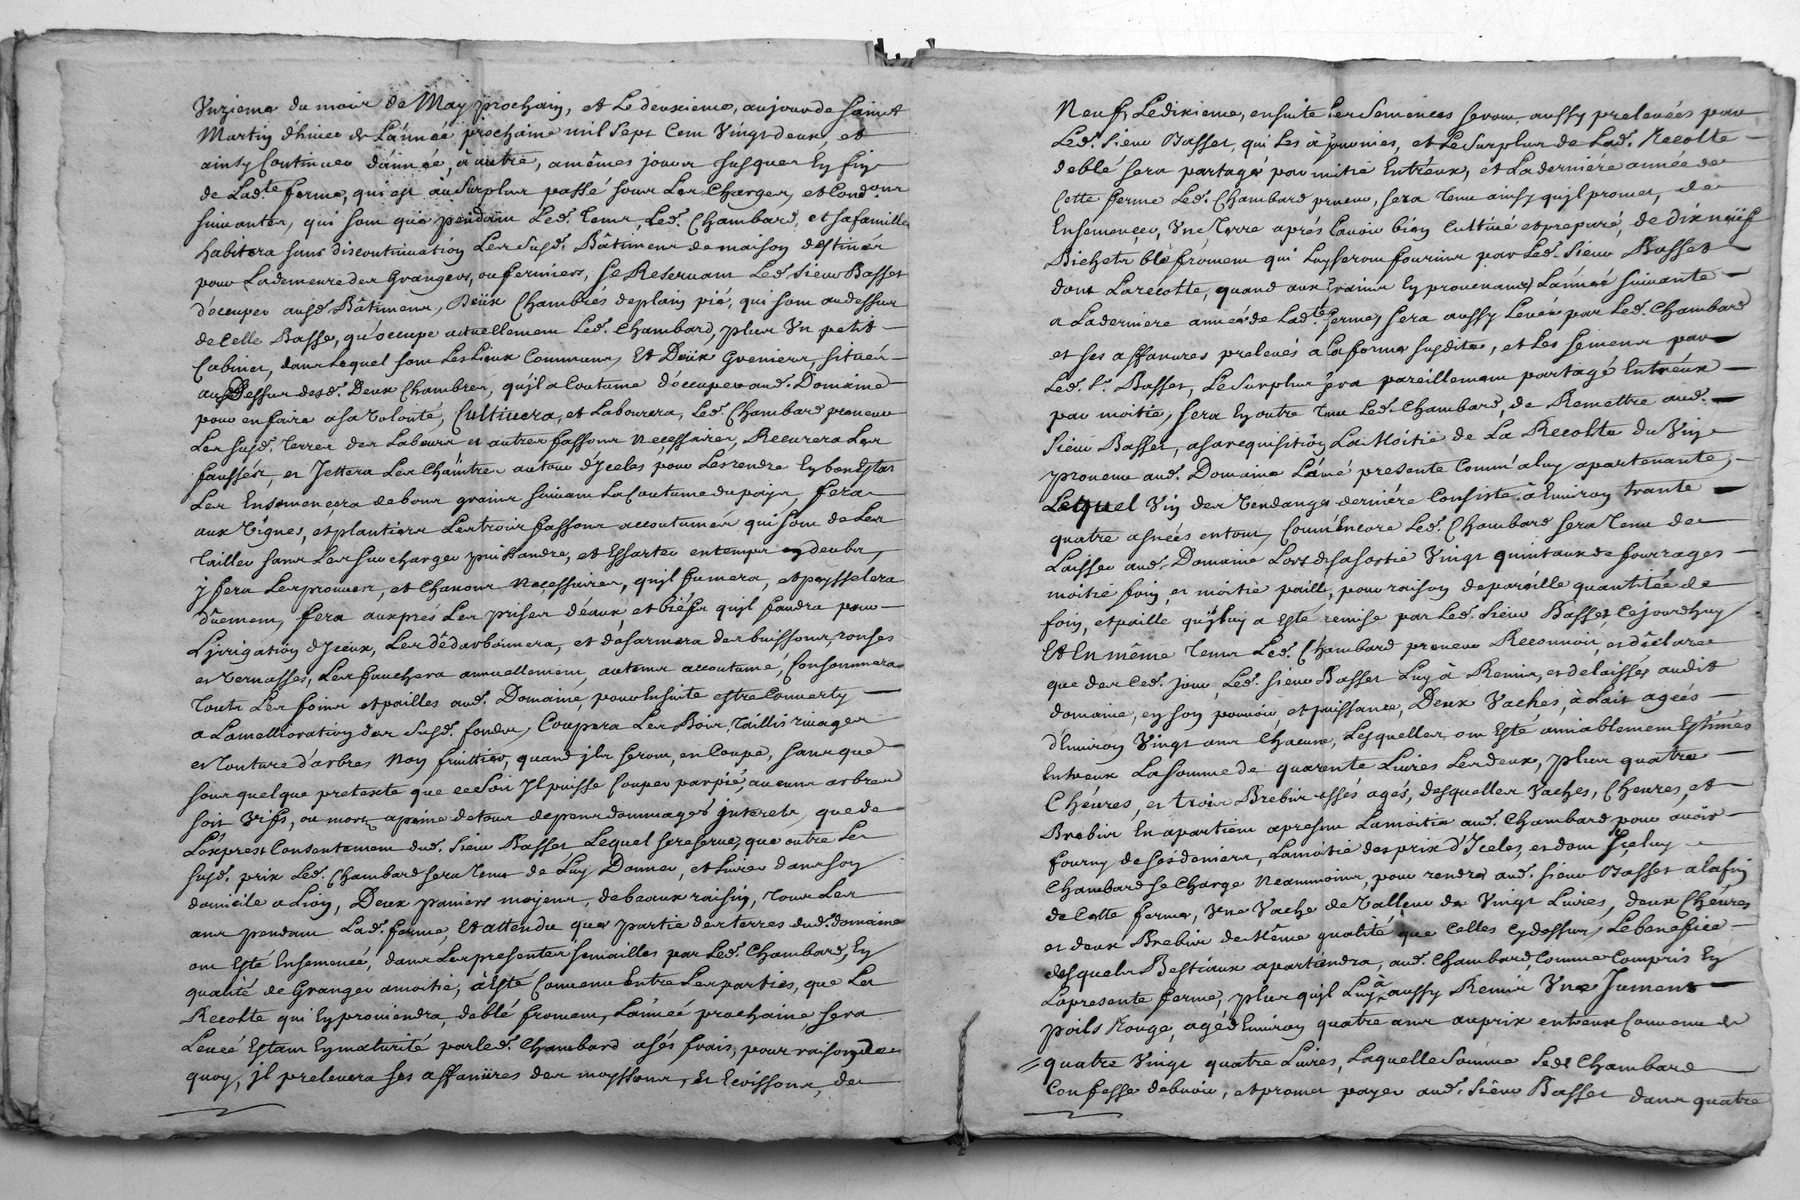 Unzieme du mois de May prochain, et Le deuxieme, au jour de Saint
Martin d'hiver de L'année prochaine mil Sept Cent Vingt deux, et
ainsy Continuer d'année, à autre, a mêmes jours Jusques En fin
de Lad.te ferme, qui est au Surplus passé sous Les Charges, et Cond.ons
suivantes, qui sont que pendant Led. Tems, Led. Chambard, et sa famille
habitera sans discontinuation Les Susd. Bâtimens de maison destinés
pour La demeure des Grangers, ou fermiers, se Reservant Led. Sieur Basset
d'occuper ausd. Bâtimens, Deüx Chambrés de plain pié, qui sont au dessus
de Celle Basse, qu'occupe actuellement Led. Chambard, plus Un petit
Cabinet, dans Lequel sont Les Lieux Communs, Et Deüx Greniers, situés
au Dessus desd. Deux Chambres, qu'il a Coutume d'occuper aud. Domaine
pour en faire a sa Volonté, Cultivera, et Labourera, Led. Chambard preneur
Les susd. Terres des Labours et autres fassons Necessaires, Recurera Les
faussés, et Jettera Les Chaintres autour d'Iceles pour Les rendre En bon Estat
Les Ensemencera de bons grains suivant La Coutume du païs, fera
aux Vignes, et plantiers Les trois fassons accoutumés qui sont de Les
Tailler sans Les surcharger puissandre, et Essarter en temps et deubs,
y fera Les provins, et Chanons Necessaires, qu'il fumera, et paysselera
düement, fera aux prés Les prises d'éaux, et biéfs qu'il faudra pour
L'jrrigation d'Jceux, Les dédarbonnera, et désarmera des buissons, ronses
et Vernasses, Les fauchera annuellement, au tems accoutumé, Consommera
Touts Les foins et pailles aud. Domaine, pour Ensuite estre Converty
a L'amellioration des susd. fonds, Coupera Les Bois Taillis rivages
et Tonture d'arbres Non fruittiers, quand jls seront en Coupe, sans que
sous quelque pretexte que ce soit Jl puisse Couper par pié, aucuns arbres
soit Vifs, ou morts a peine de tous depens dommages jnterets, que de
L'exprest Consentement dud. Sieur Basset Lequel se reserve, que outre Le
susd. prix Led. Chambard sera Tenu de Luy Donner, et Livrer dans son
domicile a Lion, Deux paniers moyens, de beaux raisins, Tous Les
ans pendant Lad. ferme, Et attendu que partie des terres dud. domaine
ont Esté Ensemencé, dans Les presentes semailles par Led. Chambard, En
qualité de Granger a moitié, à Esté Convenu Entre Les parties, que La
Recolte qui En proviendra, de blé froment, L'année prochaine, sera
Levée Estant En maturité par led. Chambard a sés frais, pour raison de
quoy, jl prelevera ses affanüres des moyssons, et Ecoissons, de
Neuf, Le dixieme, ensuite Les Semences seront aussy prelevées par
Led. Sieur Basset, qui Les à fournies, et Le Surplus de Lad. Recolte
de blé sera partagé par moitié Entréux, et La derniére année de
Cette ferme Led. Chambard preneur, sera Tenu ainsy qu'jl promet, de
Ensemencer, Une Terre aprés L'avoir bien Cultivé et preparé, de dix neüf
Bichets blé froment qui Luy seront fournis par Led. Sieur Basset
dont La recolte, quand aux Grains En provenants L'année suivante
a La derniere année de Lad.te ferme, sera aussy Levée par Led. Chambard
et ses affanures prelevés a La forme susdite, et Les semens par
Led. S. Basset, Le Surplus sera pareillement partagé Entréux
par moitié, sera En outre Tenu Led. Chambard, de Remettre aud.
Sieur Basset, a sa requisition La Moitié de La Recolte du Vin
provenu aud. Domaine L'anné presente Comm'a luy apartenante,
Lequel Vin des Vendanges derniére Consiste à Environ trante
quatre asnées en tout, Comm'Encore Led. Chambard sera Tenu de
Laisser aud. Domaine Lors de sa sortie Vingt quintaux de fourrages
moitié foin, et moitié paille, pour raison de pareille quantitée de
foin, et paille qu'jl luy a Esté remise par Led. Sieur Basset, Cejourdhuy
Et En même Tems Led. Chambard preneur Reconnoit, et déclare
que des Ced. jour, Led. Sieur Basset Luy à Remis, et delaissés audit
domaine, en son pouvoir, et puissance, Deux Vaches, à Lait ageés
d'Environ Vingt ans Chacune, Lesquelles ont Esté amiablement Estimés
Entreux La somme de quarente Livres Les deux, plus quatre
Chévres, et trois Brebis assés ageés, desquelles Vaches, Chevres, et
Brebis En apartient a present La moitié aud. Chambard pour avoir
fourny de ses deniers, La moitié des prix d'Jceles, et dont Jceluy
Chambard se Charge Neanmoins, pour rendre aud. Sieur Basset a la fin
de Cette ferme, Une Vache de Valleur de Vingt Livres, deux Chévres
et deux Brebis de Même qualité que Celles Cy dessus, Le benefice
desquels Bestiaux apartiendra, aud. Chambard, Comme Compris En
La presente ferme, plus qu'jl Luy à aussy Remis Une Jument
poils Rouge, agé d'Environ quatre ans au prix entreux Convenu de
quatre Vingt quatre Livres, Laquelle Somme Led. Chambard
Confesse debvoir, et promet payer aud. Sieur Basset dans quatre